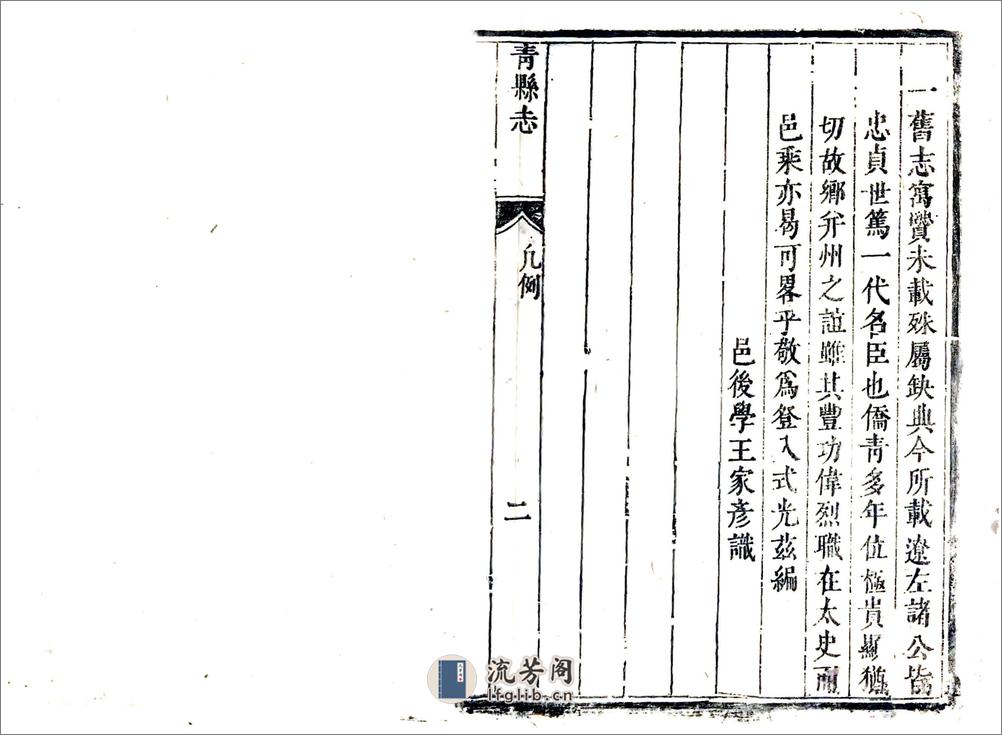 一舊志寓賢未載殊屬缺典今所載遼左諸公皆
忠貞世篤一代名臣也僑青多年位極貴顯猶
切故鄉弁州之誼雖其豐功偉烈職在太史而
邑乘亦曷可畧乎敬為登入式光兹編
邑後學王家彥識
青縣志
凡例
二
流芳阁
lfglib.cn